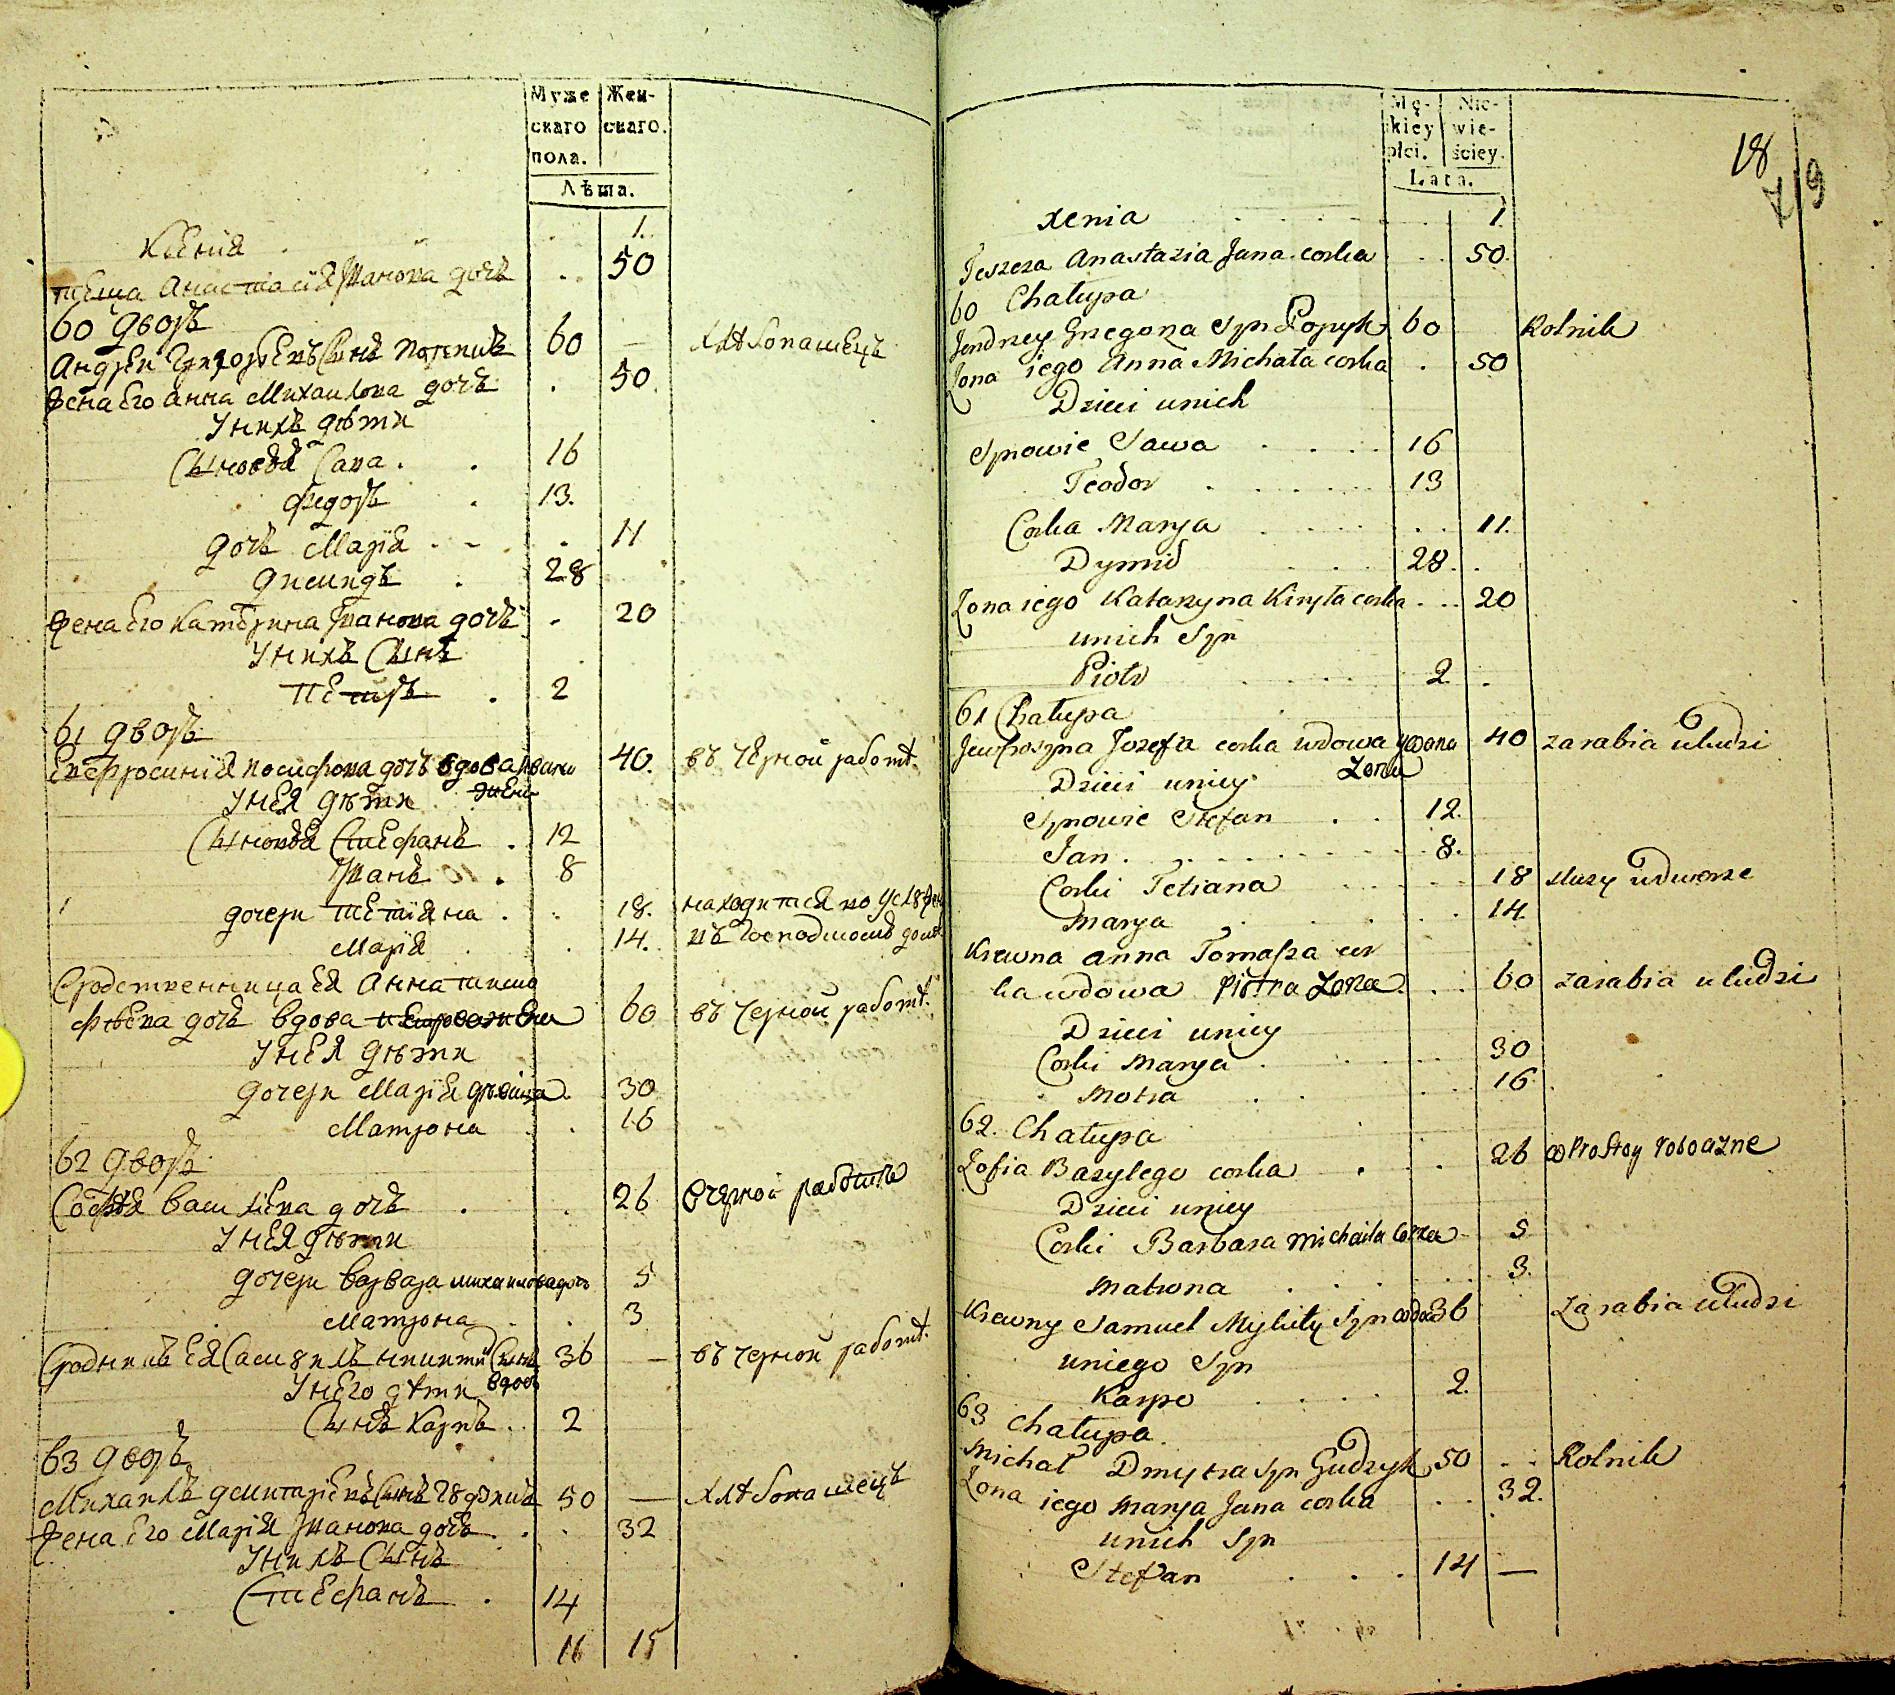 Муже
скаго
пола.
Жен-
скаго.
Лѣта.
Ксенія . . 1.
теща Анастасія Иванова дочь . . 50
60 дворъ
Андрей Григорьевъ сынъ 60 — хлѣбопашецъ
жена Его Анна Михайлова дочь . 50.
У нихъ дѣти
Сыновья Сава . . 16
Федоръ . 13.
дочь Марія . - . 11
ДиМидъ . 28
жена Его Катерина Иванова дочь . 20
У нихъ Сынъ
Петръ . 2
61 дворъ
Евфросинія Иосифова дочь вдова Ивана 40. въ черной работѣ.
жена
У нея дѣти
Сыновья Стефанъ . 12
Иванъ . 8
дочери Тетіяна . . 18. находится во услуженіи
Марія . 14. въ Господскомъ домѣ
Сродственница Ея Анна тимо
фѣева дочь вдова петрова жена 60 въ черной работѣ.
У нея дѣти
дочери Марія дѣвица. 30
Матрона . 16
62 дворъ
Софія Васильева дочь . . 26 В черной работѣ
У нея дѣти
дочери Варвара михаилова дочь 5
Матрона . . 3
Сродникъ Ея Самуилъ Никиты Сынъ 36 — въ черной работѣ.
вдовъ
У него дѣти
Сынъ Карпъ . . 2
63 дворъ
Михаилъ дмитріевъ Сынъ 50 — хлѣбопашецъ
жена Его Марія Иванова дочь . . . 32
У нихъ Сынъ
Стефанъ . 14
16 15
Mę-
kiey
płci.
Nie-
wie-
ściey.
Lata.
18
Xenia 1.
Teszcza Anastazia Jana corka . . 50.
60 Chałupa
Jendrzey Grzegorza Syn Popyk 60 Rolnik
Żona iego Anna Michała corka . 50
Dzieci unich
Synowie Sawa 16
Teodor 13
Corka Marya 11.
Dymid 28.
Żona iego Katarzyna Kiryła corka 20
unich Syn
Piotr 2.
61 Chałupa
Jewfroszyna Jozefa corka wdowa ywana 40 zarabia uludzi
Żona
Dzieci uniey
Synowie Stefan . . 12.
Jan 8.
Corki Tetiana 18 służy udworze
Marya 14.
Krewna Anna Tomasza cor
ka wdowa Piotra Żona . . 60 zarabia uludzi
Dzieci uniey
Corki Marya 30
Motra 16.
62. Chałupa
Zofia Bazylego corka 26 w Prostoy roboczne
Dzieci uniey
Corki Barbara Michaila Corka 5
Matrona 3.
Krewny Samuel Mykity Syn wdow 36 zarabia uludzi
uniego Syn
Karpo 2.
63 Chałupa
Michał Dmytra Syn Gudzyk 50 . . Rolnik
Żona iego Marya Jana corka . . 32.
unich Syn
Stefan 14 —